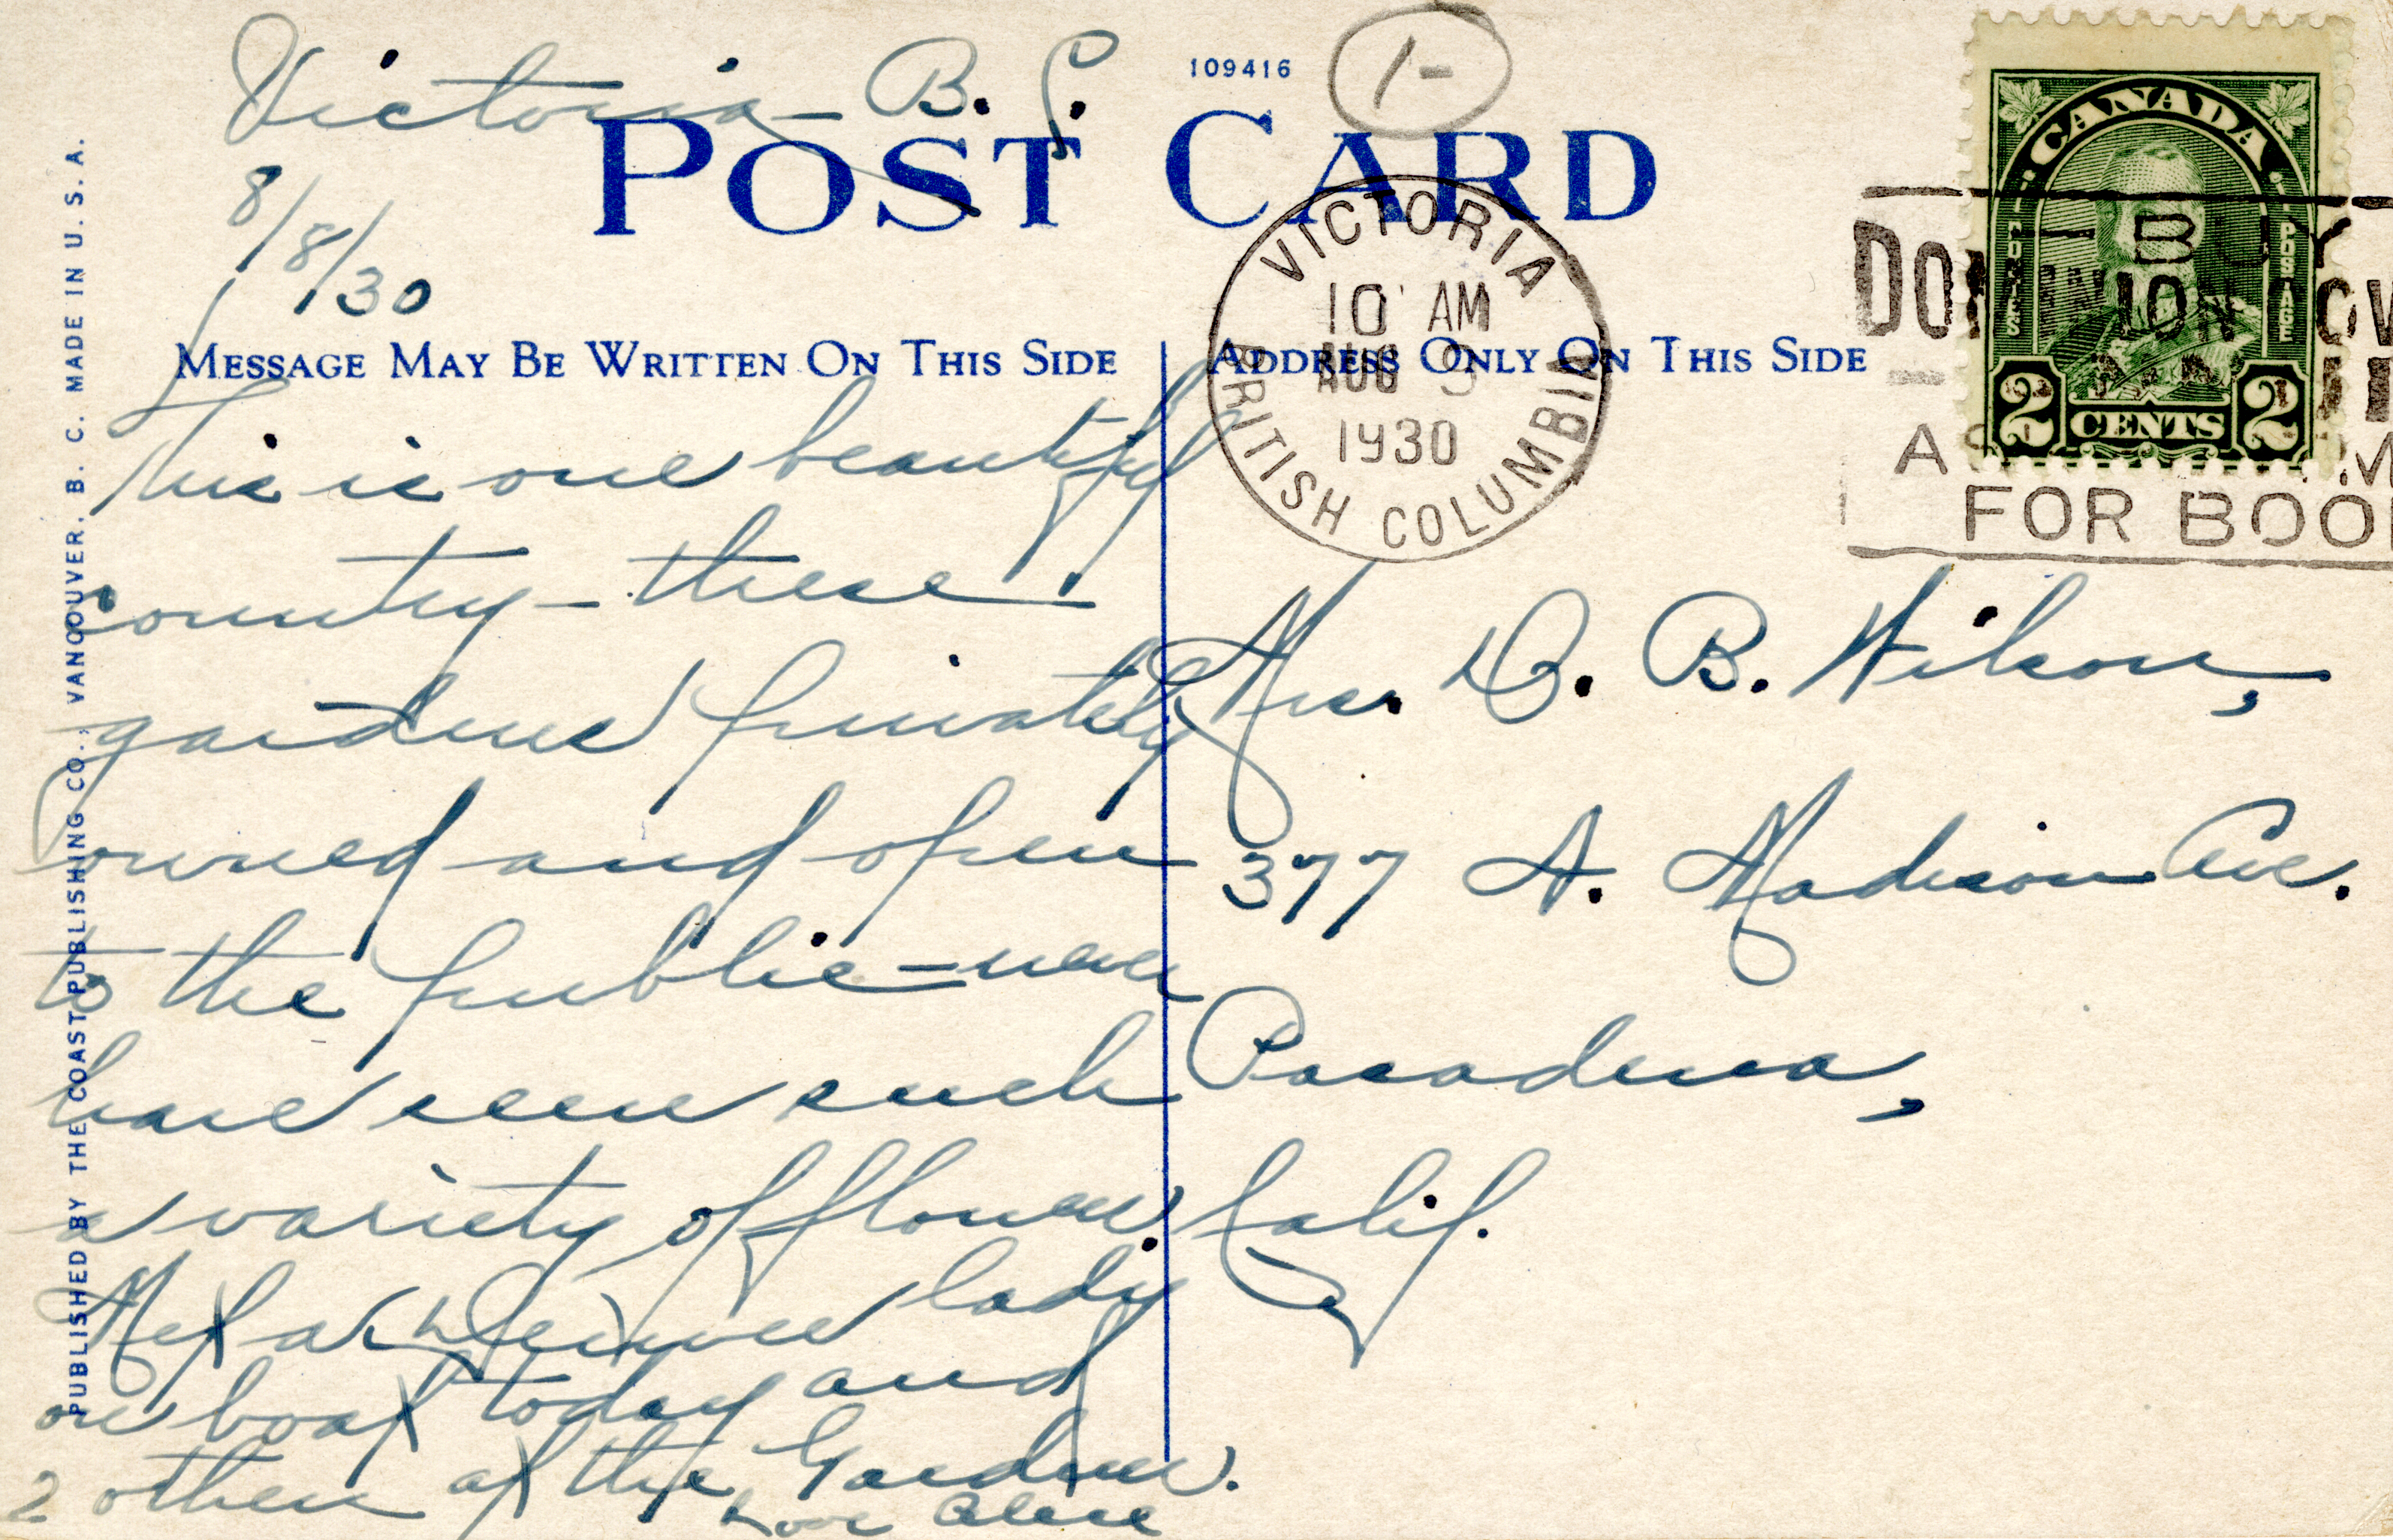 Victoria - B. C.
8/8/30
109416
1-
POST CARD
MESSAGE MAY BE WRITTEN ON THIS SIDE
ADDRESS ONLY ON THIS SIDE
This is one beautiful
country - these
gardens privately
owned and open
to the public - never
have seen such
a variety of flowers.
Met a Denver lady
on boat today and
2 others at the Gardens.
Love
Mrs. D. B. Wilson,
377 N. Madison Ave.
Pasadena,
Calif.
VICTORIA
10 AM
AUG 9
1930
BRITISH COLUMBIA
CANADA
POSTES POSTAGE
2 CENTS 2
BUY
FOR
PUBLISHED BY THE COAST PUBLISHING CO., VANCOUVER, B. C. MADE IN U. S. A.